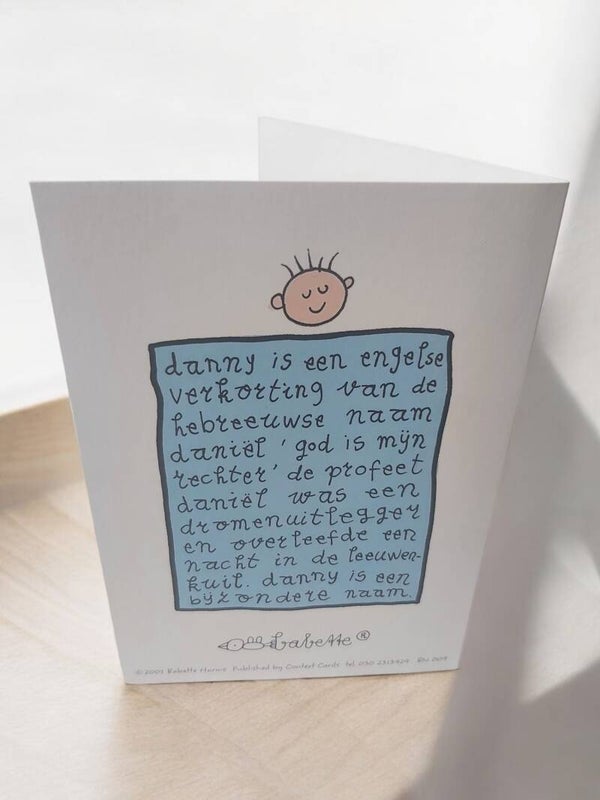 danny is een engelse
verkorting van de
hebreeuwse naam
daniël 'god is mijn
rechter' de profeet
daniël was een
dromenuitlegger
en overleefde een
nacht in de leeuwen-
kuil. danny is een
bijzondere naam.
babette ®
© 2001 Babette Harms Published by Context Cards tel. 030 2313424